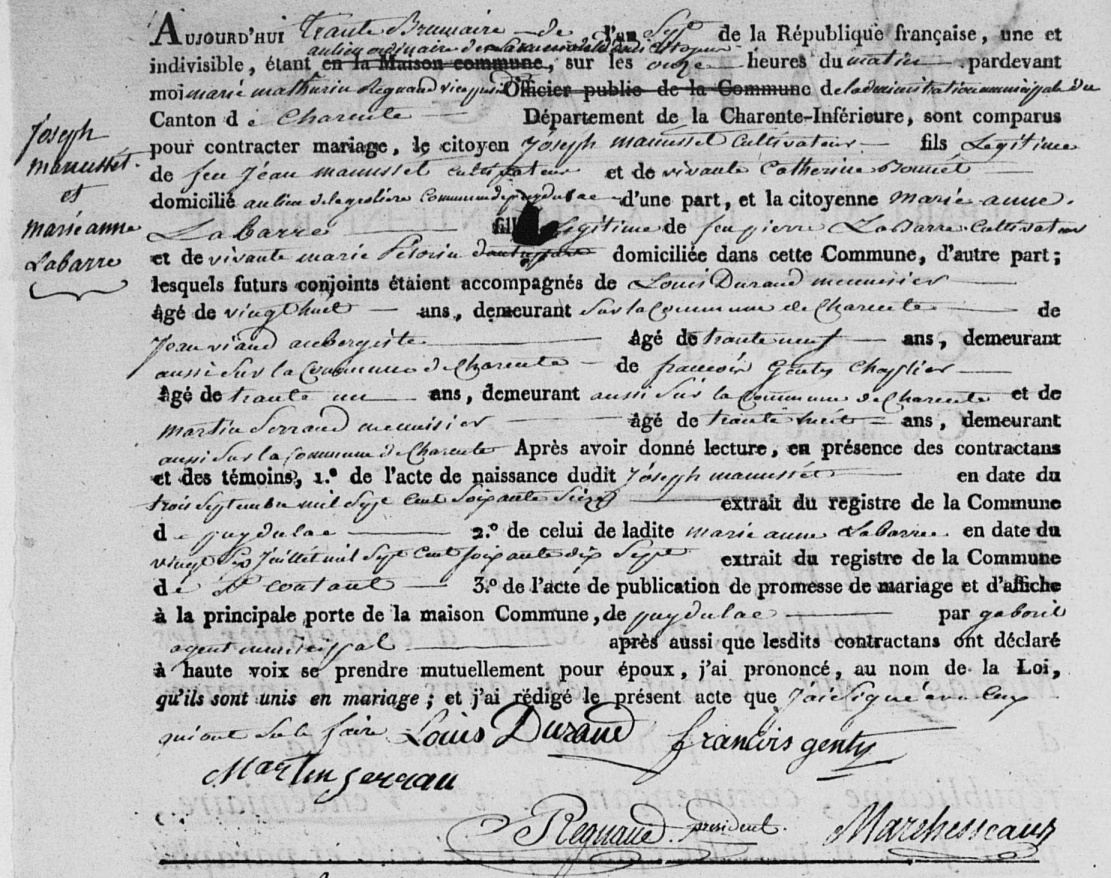 Aujourd'hui trante Brumaire de l'an Sept de la République française, une et
au lieu ordinaire
indivisible, étant en la Maison commune, sur les onze heures du matin pardevant
moi marie mathurin Regnaud Officier public de la Commune de ladministration municipale du
Canton de Charente Département de la Charente-Inférieure, sont comparus
Joseph manusset et marie anne Labarre
pour contracter mariage, le citoyen Joseph manusset Cultivateur fils Legitime
de feu Jean manusset cultivateur et de vivante Catherine Bonnet
domicilié au lieu de la Commune de puydulac d'une part, et la citoyenne marie anne
Labarre fille Legitime de feu pierre Labarre Cultivateur
et de vivante marie domiciliée dans cette Commune, d'autre part;
lesquels futurs conjoints étaient accompagnés de Louis Durand menuisier
âgé de vingt huit ans, demeurant Sur la Commune de Charente de
Jean viaud aubergiste âgé de trante neuf ans, demeurant
aussi Sur la Commune de Charente de francois Genty
âgé de trante un ans, demeurant aussi Sur la Commune de Charente et de
martin Serraud menuisier âgé de trante huit ans, demeurant
aussi Sur la Commune de Charente Après avoir donné lecture, en présence des contractans
et des témoins, 1.º de l'acte de naissance dudit Joseph manusset en date du
trois Septembre mil Sept cent Soixante Seize extrait du registre de la Commune
de puydulac 2.º de celui de ladite marie anne Labarre en date du
vingt Six Juillet mil Sept Cent Soixante dix Sept extrait du registre de la Commune
de St coutant 3.º de l'acte de publication de promesse de mariage et d'affiche
à la principale porte de la maison Commune, de puydulac par gaborit
agent municipal après aussi que lesdits contractans ont déclaré
à haute voix se prendre mutuellement pour époux, j'ai prononcé, au nom de la Loi,
qu'ils sont unis en mariage; et j'ai rédigé le présent acte que J'ai Signé avec Ceux
qui ont Su le faire Louis Durand francois genty
Martin Serrau
Regnaud president. Marchesseaux